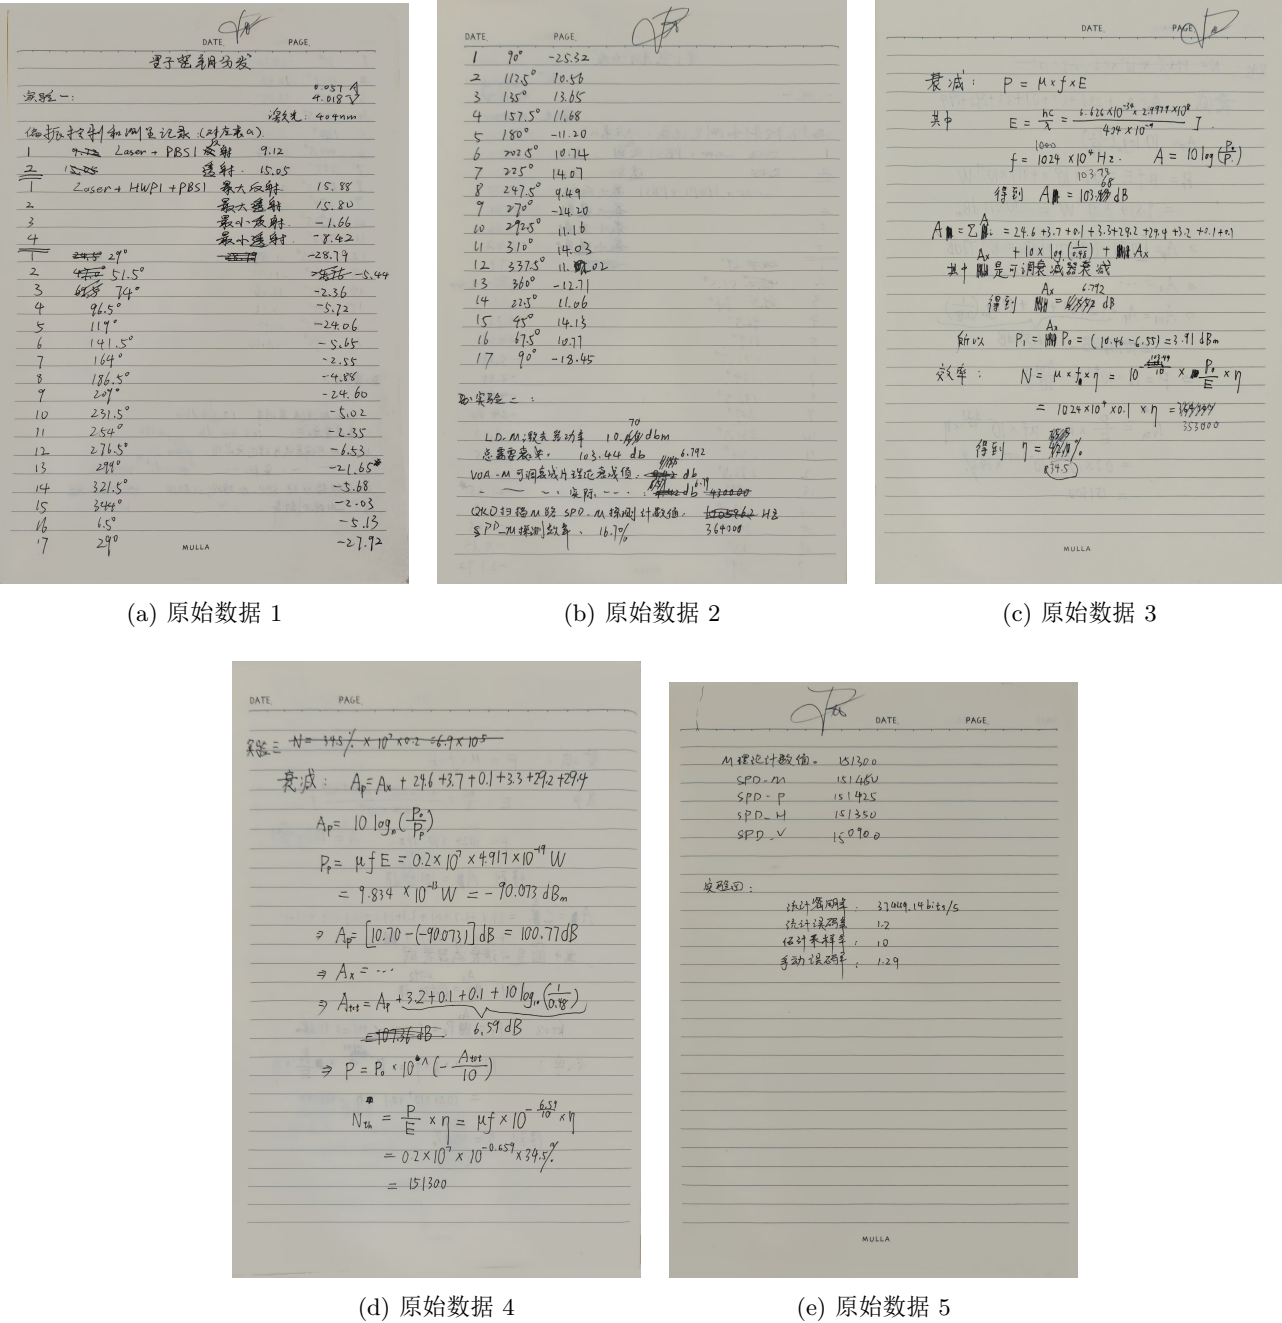 DATE. PAGE.
量子密钥分发
实验一: 0.057 A
4.018 V
激光: 404nm
偏振控制和测量记录 (对左表a)
1 Laser + PBS1 反射 9.12
2 透射. 15.05
1 Laser + HWP1 + PBS1 最大反射 15.88
2 最大透射 15.80
3 最小反射. -1.66
4 最小透射. -8.42
1 29° -28.79
2 51.5° -5.44
3 74° -2.36
4 96.5° -5.72
5 119° -24.06
6 141.5° -5.65
7 164° -2.55
8 186.5° -4.88
9 209° -24.60
10 231.5° -5.02
11 254° -2.35
12 276.5° -6.53
13 299° -21.65
14 321.5° -5.68
15 344° -2.03
16 6.5° -5.13
17 29° -27.92
MULLA
(a) 原始数据 1
DATE. PAGE.
1 90° -25.32
2 112.5° 10.56
3 135° 13.65
4 157.5° 11.68
5 180° -11.20
6 202.5° 10.74
7 225° 14.07
8 247.5° 9.49
9 270° -24.20
10 292.5° 11.16
11 310° 14.03
12 337.5° 11.02
13 360° -12.71
14 22.5° 11.06
15 45° 14.13
16 67.5° 10.77
17 90° -18.45
实验二:
LD-M激光器功率 10.70 dbm
总需要衰减. 103.44 db
VOA-M可调衰减片理论衰减值: 6.792 db
实际 db 6.79
QKD扫描M路 SPD-M探测计数值: 364000 HZ
SPD-M探测效率. 16.7%
(b) 原始数据 2
DATE. PAGE.
衰减: P = μ×f×E
其中 E = hc/λ = 6.626×10⁻³⁴×2.9979×10⁸ / 404×10⁻⁹ J.
f = 1024 ×10⁴ Hz. A = 10 log(P₀/P)
得到 A = 103. dB
A = Σ = 24.6+3.7+0.1+3.3+29.2+29.4+3.2+0.1+0.1
+ 10× log(1/0.48) + Ax
其中 Ax 是可调衰减器衰减
得到 Ax = 6.792 dB
所以 P₁ = P₀ = (10.46 - 6.55) = 3.91 dBm
效率: N = μ×f×η = 10 × P₀/E × η
= 1024×10⁴×0.1 × η = 353000
得到 η = %
(34.5)
MULLA
(c) 原始数据 3
DATE. PAGE.
实验三 N = 34.5% × 10⁷×0.2 = 6.9×10⁵
衰减: Ap = Ax + 24.6+3.7+0.1+3.3+29.2+29.4
Ap = 10 log₁₀(P₀/Pp)
Pp = μfE = 0.2×10⁷×4.917×10⁻¹⁹ W
= 9.834 ×10⁻¹³ W = -90.073 dBm
⇒ Ap = [10.70-(-90.073)] dB = 100.77 dB
⇒ Ax = ...
⇒ Atot = Ap + 3.2+0.1+0.1+10 log₁₀(1/0.48)
=107.36 dB 6.59 dB
⇒ P = P₀·10^(-Atot/10)
Nth = P/E × η = μf×10^(-6.59/10) × η
= 0.2×10⁷×10⁻⁰·⁶⁵⁹×34.5%
= 151300
(d) 原始数据 4
DATE. PAGE.
M理论计数值. 151300
SPD-M 151450
SPD-P 151425
SPD-H 151350
SPD-V 150900
实验四:
统计密钥率: 37449.14 bits/s
统计误码率 1.2
估计采样率: 10
手动误码率: 1.29
MULLA
(e) 原始数据 5